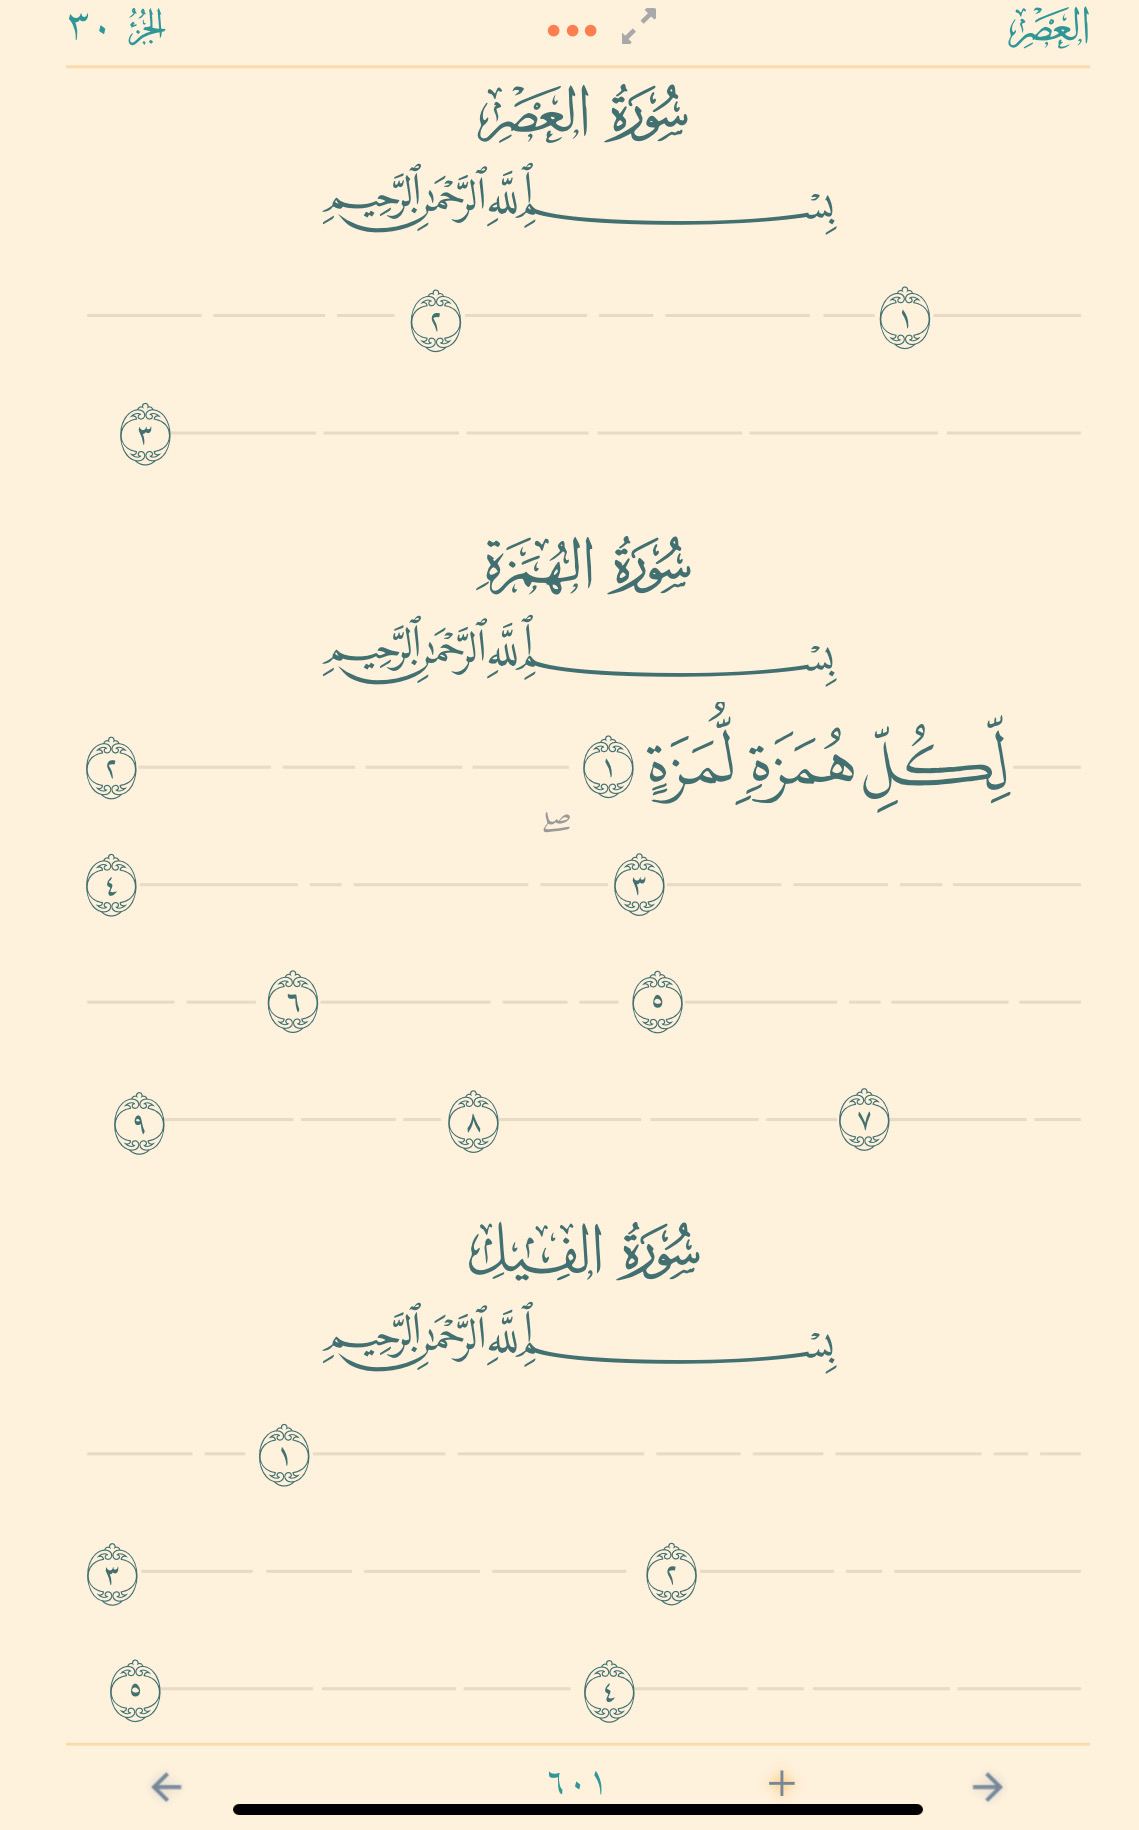 العَصْرِ الجُزْءُ ٣٠
سُورَةُ العَصْرِ
بِسْمِ ٱللَّهِ ٱلرَّحْمَٰنِ ٱلرَّحِيمِ
١ ٢
٣
سُورَةُ الهُمَزَةِ
بِسْمِ ٱللَّهِ ٱلرَّحْمَٰنِ ٱلرَّحِيمِ
لِّكُلِّ هُمَزَةٍ لُّمَزَةٍ ١ ٢
صلے
٣ ٤
٥ ٦
٧ ٨ ٩
سُورَةُ الفِيلِ
بِسْمِ ٱللَّهِ ٱلرَّحْمَٰنِ ٱلرَّحِيمِ
١
٢ ٣
٤ ٥
٦٠١